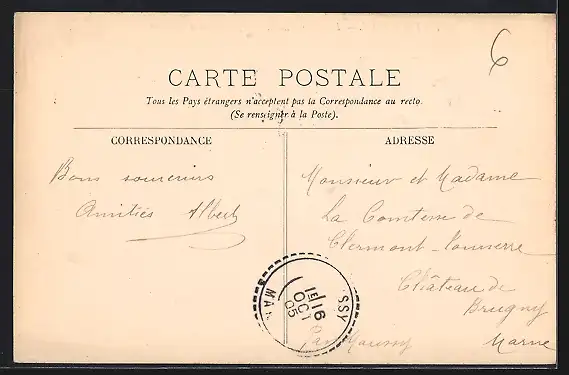 6
CARTE POSTALE
Tous les Pays étrangers n'acceptent pas la Correspondance au recto.
(Se renseigner à la Poste).
CORRESPONDANCE
ADRESSE
Bons souvenirs
Amitiés Albert
Monsieur et Madame
La Comtesse de
Clermont-Tonnerre
Château de
Brugny
Par Moussy
Marne
SSY
MA
1E/16
OCT
05